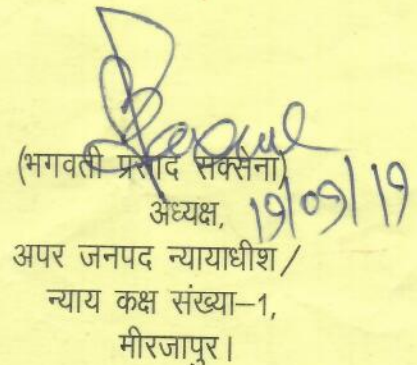 (भगवती प्रसाद सक्सेना)
अध्यक्ष, 19/09/19
अपर जनपद न्यायाधीश /
न्याय कक्ष संख्या–1,
मीरजापुर।